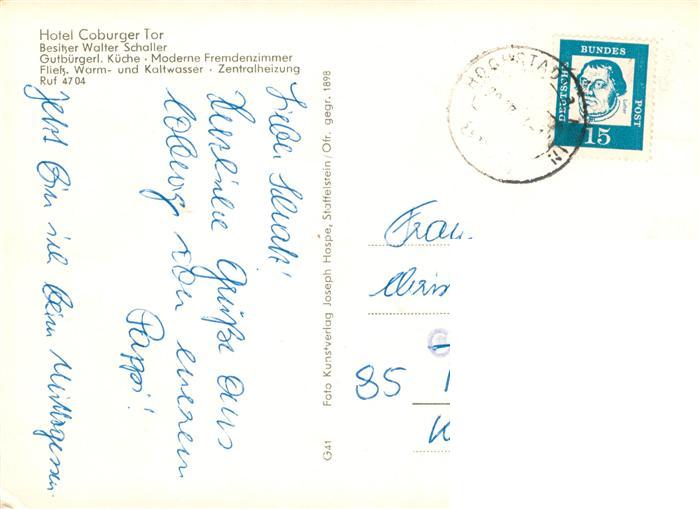 Hotel Coburger Tor
Besitzer Walter Schaller
Gutbürgerl. Küche · Moderne Fremdenzimmer
Fließ. Warm- und Kaltwasser · Zentralheizung
Ruf 47 04
Lieber Schatz!
Herzliche Grüße aus
Coburg von eurem
Pappi!
Jetzt bin ich beim Mittagessen
G 41 Foto Kunstverlag Joseph Hospe, Staffelstein/Ofr. gegr. 1898
DEUTSCHE
BUNDES
POST
Luther
15
Frau
85